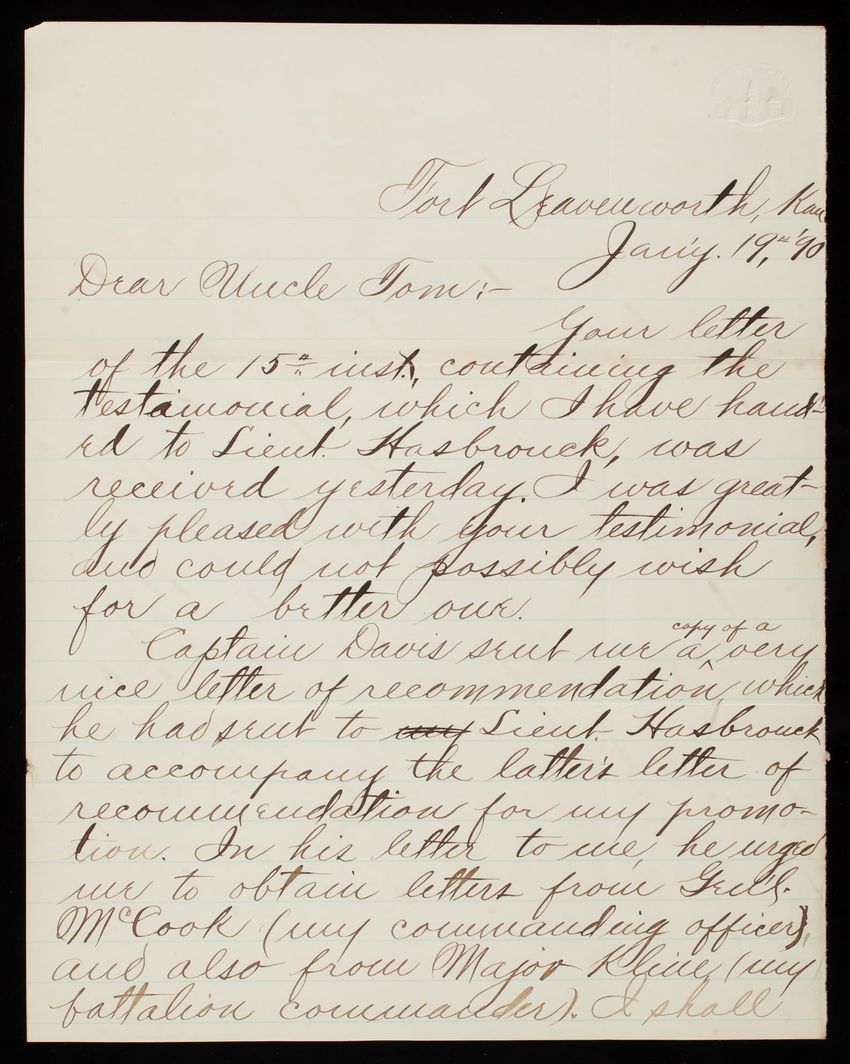 Fort Leavenworth, Kan
Jan'y. 19th, '90
Dear Uncle Tom:-
Your letter
of the 15th inst., containing the
testimonial, which I have hand-
ed to Lieut. Hasbrouck, was
received yesterday. I was great-
ly pleased with your testimonial,
and could not possibly wish
for a better one.
Captain Davis sent me a copy of a very
nice letter of recommendation, which
he had sent to my Lieut. Hasbrouck
to accompany the latter's letter of
recommendation for my promo-
tion. In his letter to me, he urged
me to obtain letters from Gen'l.
McCook (my commanding officer),
and also from Major Kline, (my
battalion commander). I shall